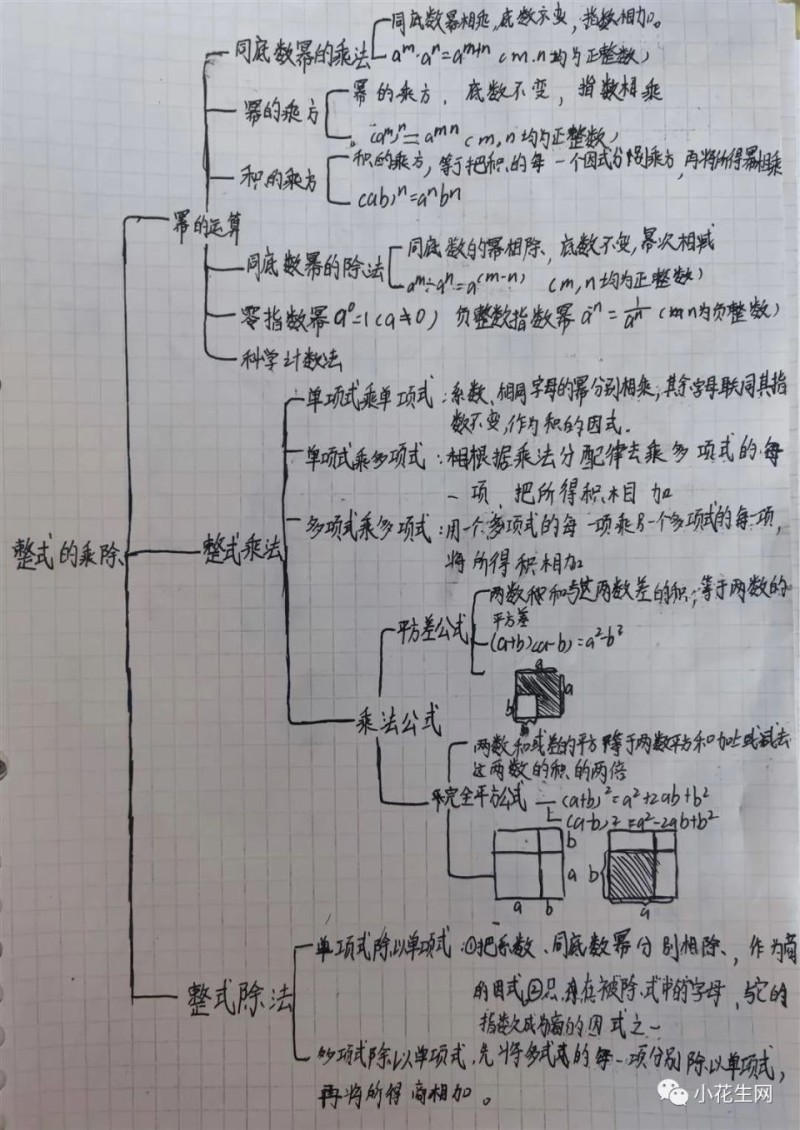 同底数幂相乘,底数不变,指数相加。
同底数幂的乘法
aᵐ·aⁿ=aᵐ⁺ⁿ (m.n均为正整数)
幂的乘方,底数不变,指数相乘
幂的乘方
(aᵐ)ⁿ=aᵐⁿ (m,n均为正整数)
积的乘方,等于把积的每一个因式分别乘方,再将所得幂相乘
积的乘方
(ab)ⁿ=aⁿbⁿ
幂的运算
同底数的幂相除、底数不变,幂次相减
同底数幂的除法
aᵐ÷aⁿ=a⁽ᵐ⁻ⁿ⁾ (m,n均为正整数)
零指数幂a⁰=1(a≠0) 负整数指数幂a⁻ⁿ=1/aⁿ (n为负整数)
科学计数法
单项式乘单项式:系数、相同字母的幂分别相乘,其余字母联同其指
数不变,作为积的因式.
单项式乘多项式:相根据乘法分配律去乘多项式的每
一项,把所得积相加
多项式乘多项式:用一个多项式的每一项乘另一个多项式的每一项,
将所得积相加
整式的乘除
整式乘法
两数和与这两数差的积,等于两数的
平方差
平方差公式
(a+b)(a-b)=a²-b²
a
a
b
乘法公式
两数和或差的平方等于两数平方和加上或减去
这两数的积的两倍
完全平方公式
(a+b)²=a²+2ab+b²
(a-b)²=a²-2ab+b²
b
a
b
a b
a
单项式除以单项式:①把系数、同底数幂分别相除、,作为商
的因式②只存在被除式中的字母,与它的
指数成为商的因式之一
整式除法
多项式除以单项式,先将多式的每一项分别除以单项式,
再将所得商相加。
小花生网